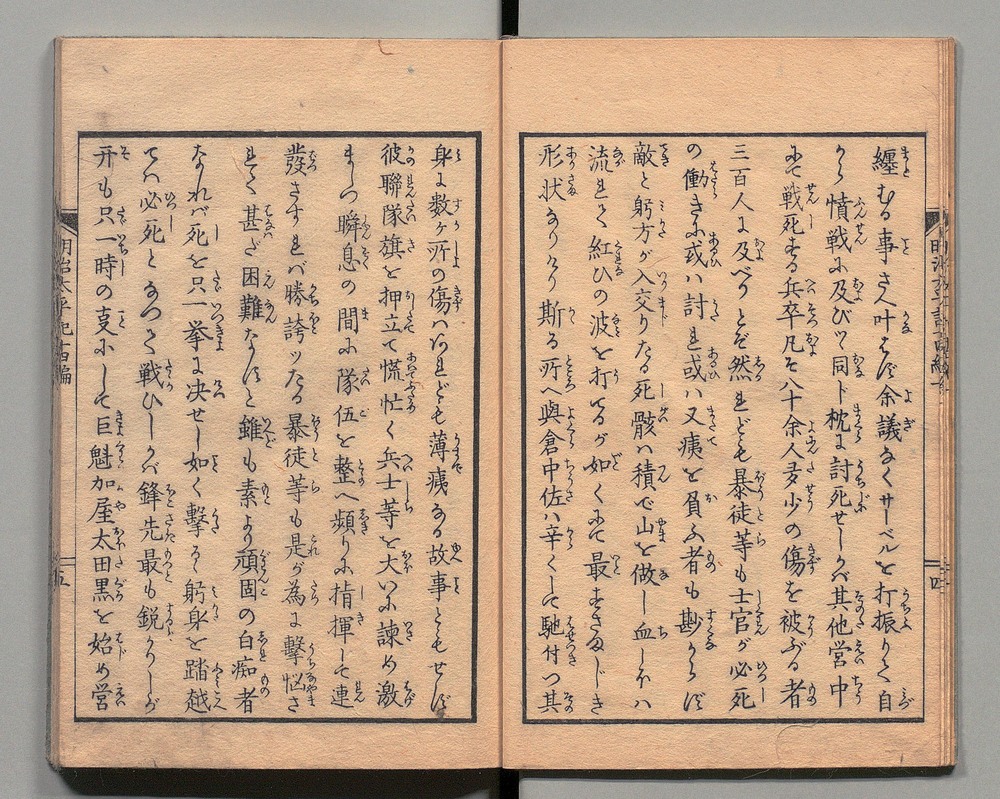 纏むる事さへ叶はず余議なくサーベルを打振りて自
から憤戦に及びツヽ同ト枕に討死せしかバ其他営中
にて戦死する兵卒凡そ八十余人多少の傷を被ぶる者
三百人に及べりとぞ然れども暴徒等も士官が必死
の働きに或ひハ討れ或ひハ又痍を負ふ者も尠からず
敵と躬方が入交りたる死骸ハ積で山を做し血しほハ
流れて紅ひの波を打いるが如くにて最すさまじき
形状なりけり斯る所へ與倉中佐ハ辛くして馳付つ其
身に数ヶ所の傷ハあれども薄痍なる故事ともせず
彼聯隊旗を押立て慌忙く兵士等を大いに諫め激
ましつ瞬息の間に隊伍を整へ頻りに指揮して連
發さすれバ勝誇ツたる暴徒等も是が為に撃悩さ
れて甚だ困難なれと雖も素より頑固の白痴者
なれバ死を只一挙に决せし如く撃るヽ躬身を踏越
てハ必死となつて戦ひしかバ鋒先最も鋭かりしが
开も只一時の㕝にして巨魁加屋太田黒を始め営
明治太平記十四編
五
四